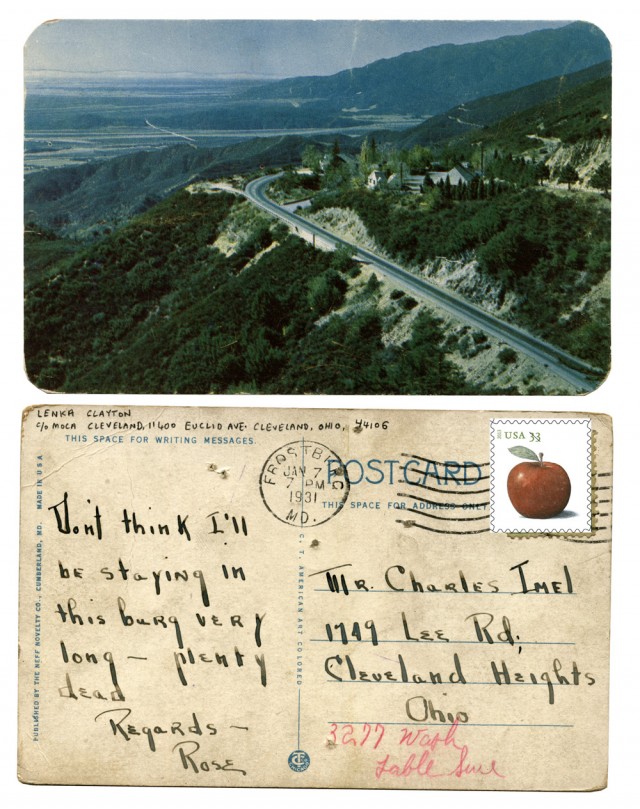 LENKA CLAYTON
C/O MOCA CLEVELAND, 11400 EUCLID AVE. CLEVELAND, OHIO, 44106
THIS SPACE FOR WRITING MESSAGES.
Don't think I'll
be staying in
this burg very
long — plenty
dead
Regards —
Rose
PUBLISHED BY THE NEFF NOVELTY CO., CUMBERLAND, MD. MADE IN U S A
C. T. AMERICAN ART COLORED
JAN 7
7 PM
1931
MD.
POSTCARD
THIS SPACE FOR ADDRESS ONLY
USA 33
Mr. Charles Imel
1749 Lee Rd.
Cleveland Heights
Ohio
3277 Wash